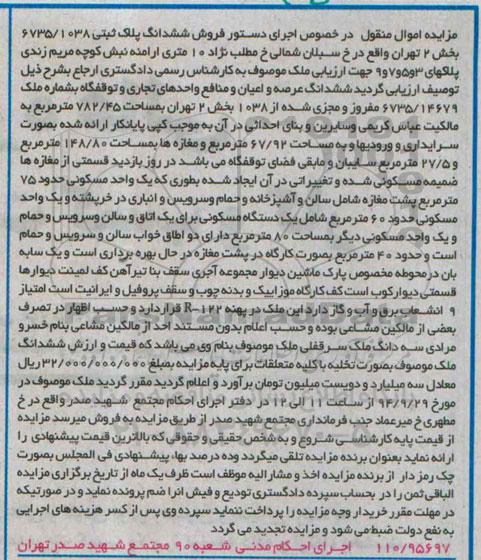 مزایده اموال منقول در خصوص اجرای دستور فروش ششدانگ پلاک ثبتی ۶۷۳۵/۱۰۳۸
بخش ۲ تهران واقع در خ سبلان شمالی خ مطلب نژاد ۱۰ متری ارامنه نبش کوچه مریم زندی
پلاکهای ۹۳و۷۹۵و جهت ارزیابی ملک موصوف به کارشناس رسمی دادگستری ارجاع بشرح ذیل
توصیف ارزیابی گردید ششدانگ عرصه و اعیان و منافع واحدهای تجاری و توقفگاه بشماره ملک
۶۷۳۵/۱۴۶۷۹ مفروز و مجزی شده از ۱۰۳۸ بخش ۲ تهران بمساحت ۷۸۲/۴۵ مترمربع به
مالکیت عباس کریمی وسایرین و بنای احداثی در آن به موجب کپی پایانکار ارائه شده بصورت
سرایداری و ورودیها و به مساحت ۶۷/۹۲ مترمربع و مغازه ها بمساحت ۱۴۸/۸۰ مترمربع
و ۲۷/۵ مترمربع سایبان و مابقی فضای توقفگاه می باشد در روز بازدید قسمتی از مغازه ها
ضمیمه مسکونی شده و تغییراتی در آن ایجاد شده بطوری که یک واحد مسکونی حدود ۷۵
مترمربع پشت مغازه شامل سالن و آشپزخانه و حمام وسرویس و انباری در خرپشته و یک واحد
مسکونی حدود ۶۰ مترمربع شامل یک دستگاه مسکونی برای یک اتاق و سالن وسرویس و حمام
و یک واحد مسکونی دیگر بمساحت ۸۰ مترمربع دارای دو اطاق خواب سالن و سرویس و حمام
است و حدود ۴۰ مترمربع بصورت کارگاه در پشت مغازه در حال بهره برداری است و یک سایه
بان در محوطه مخصوص پارک ماشین دیوار مجموعه آجری سقف بنا تیرآهن کف لمینت دیوارها
قسمتی دیوار کوب است کف کارگاه موزاییک و بدنه چوب و سقف پروفیل و ایرانیت است امتیاز
۹ انشعاب برق و آب و گاز دارد این ملک در پهنه R-۱۲۲ قرار دارد و حسب اظهار در تصرف
بعضی از مالکین مشاعی بوده و حسب اعلام بدون مستند احد از مالکین مشاعی بنام خسرو
مرادی سه دانگ ملک سرقفلی ملک موصوف بنام وی می باشد که قیمت و ارزش ششدانگ
ملک موصوف بصورت تخلیه باکلیه متعلقات برای پایه مزایده بمبلغ ۳۲/۰۰۰/۰۰۰/۰۰۰ ریال
معادل سه میلیارد و دویست میلیون تومان برآورد و اعلام گردید مقرر گردید ملک موصوف در
مورخ ۹۴/۷/۲۹ از ساعت ۱۱ الی ۱۲ در دفتر اجرای احکام مجتمع شهید صدر واقع در خ
مطهری خ میرعماد جنب فرمانداری مجتمع شهید صدر از طریق مزایده به فروش میرسد مزایده
از قیمت پایه کارشناسی شروع و به شخص حقیقی و حقوقی که بالاترین قیمت پیشنهادی را
ارائه نماید بعنوان برنده مزایده تلقی میگردد وده درصد بها، پیشنهادی فی المجلس بصورت
چک رمز دار از برنده مزایده اخذ و مشارالیه موظف است ظرف یک ماه از تاریخ برگزاری مزایده
الباقی ثمن را در بحساب سپرده دادگستری تودیع و فیش انرا ضم پرونده نماید و در صورتیکه
در مهلت مقرر خریدار وجه مزایده را پرداخت ننماید سپرده وی پس از کسر هزینه های اجرایی
به نفع دولت ضبط می شود و مزایده تجدید می گردد
۱۱۰/۹۵۶۹۷ اجرای احکام مدنی شعبه ۹۰ مجتمع شهید صدر تهران